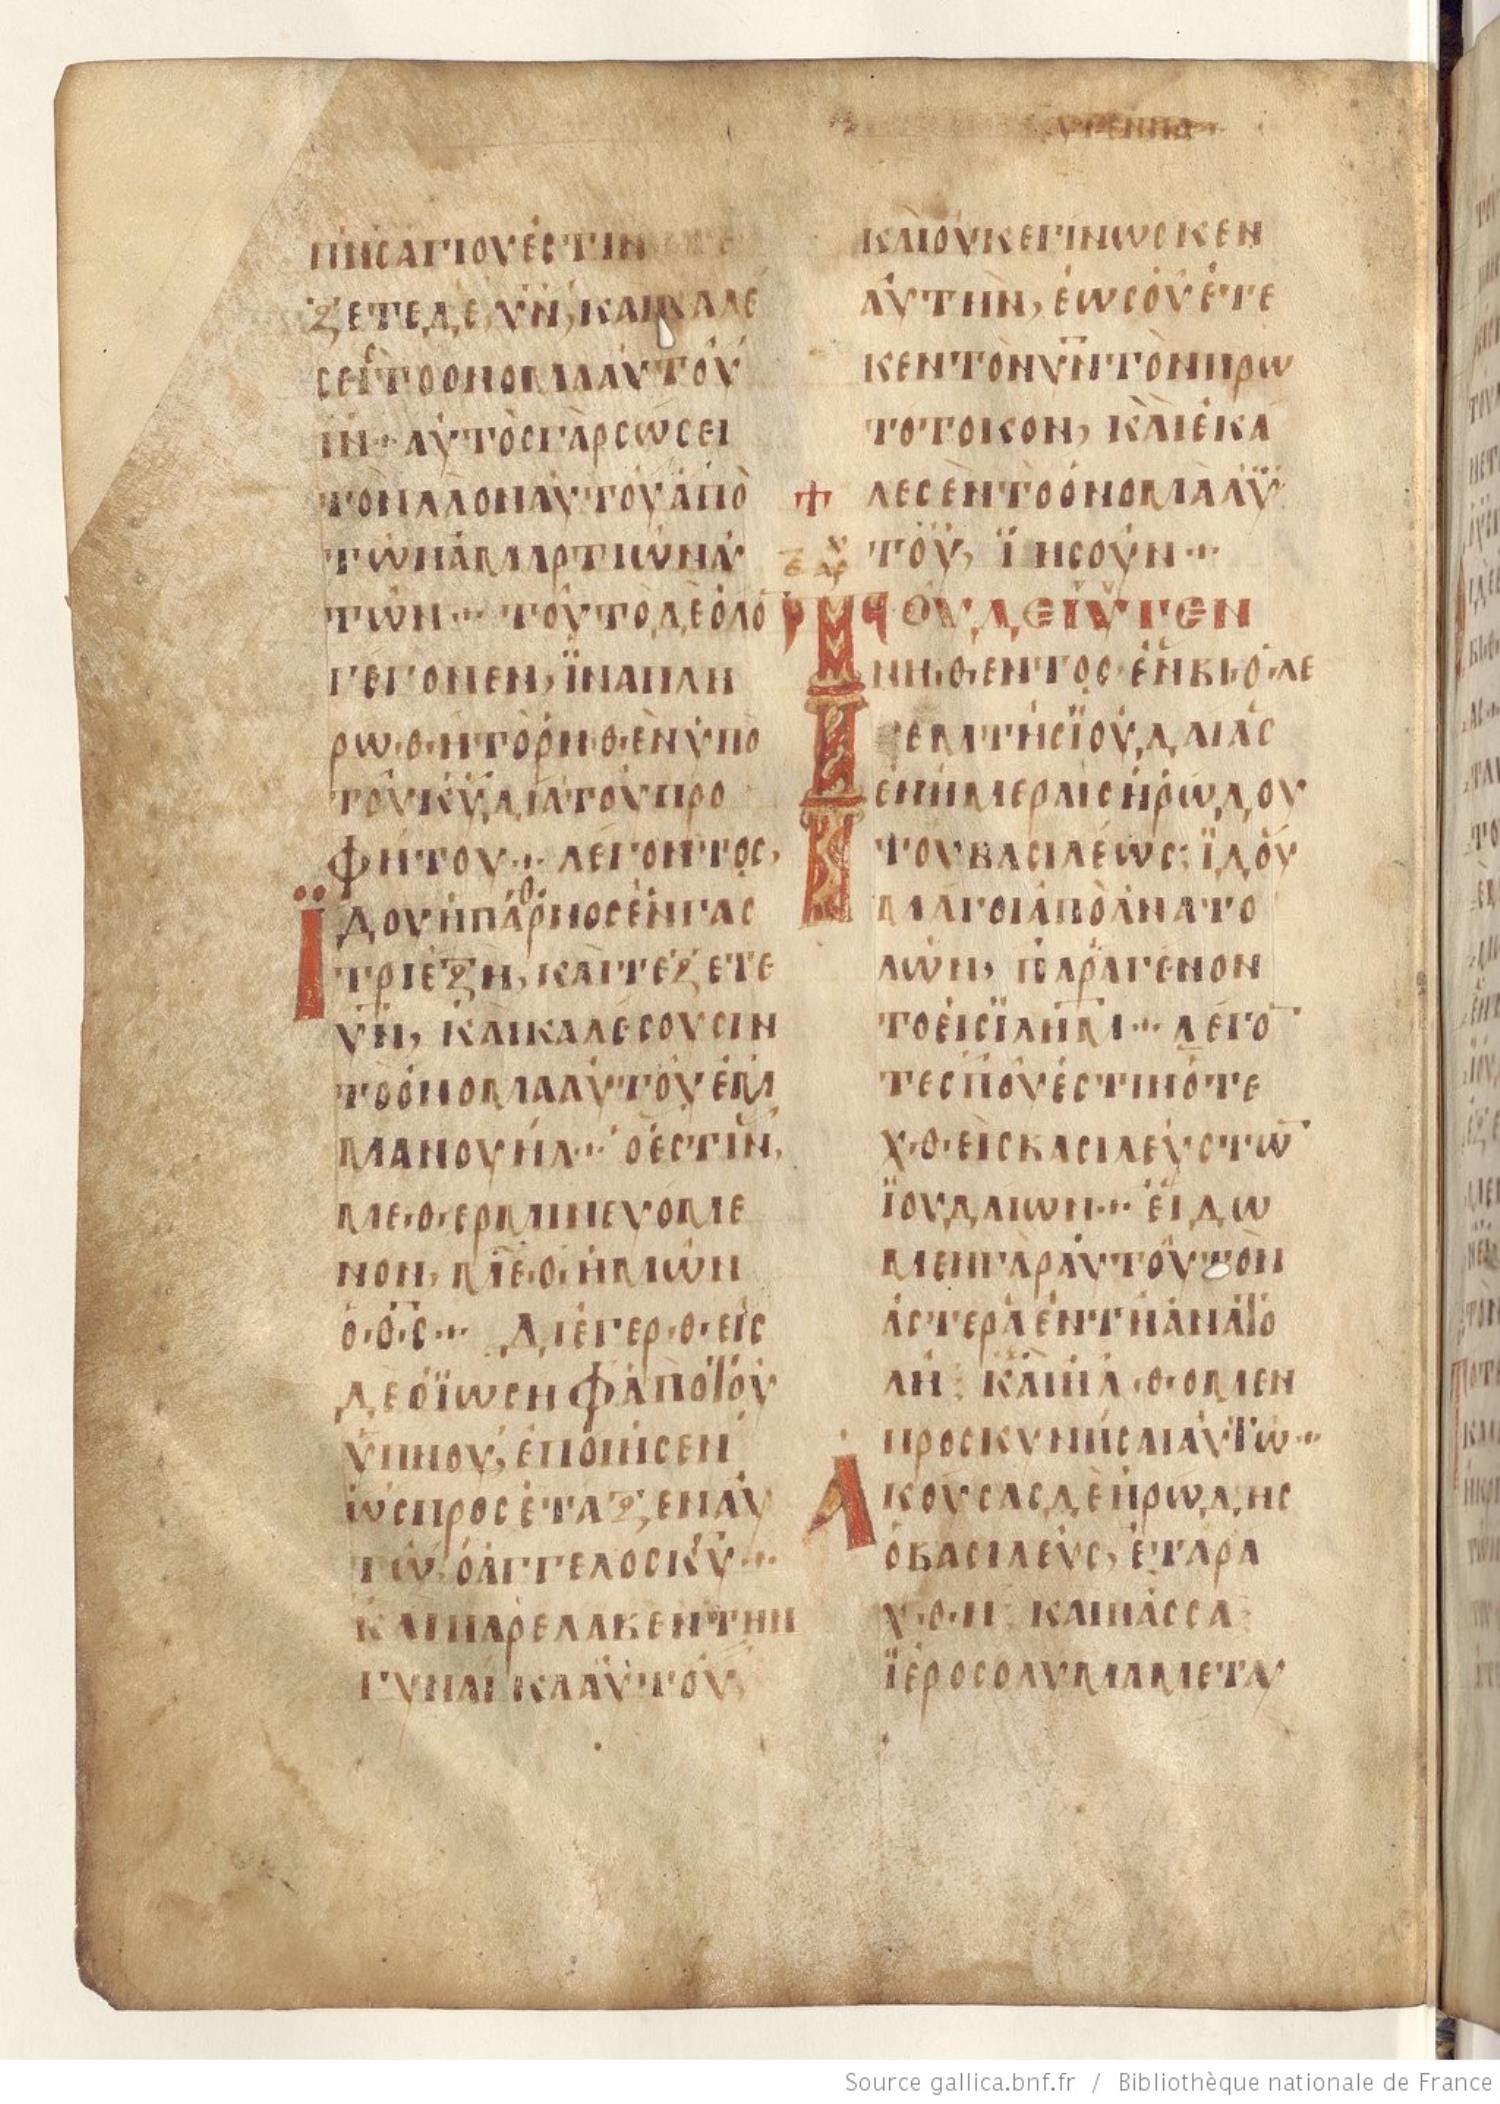 ΠΝϹΑΓΙΟΥΕϹΤΙΝ
ΞΕΤΕΔΕΥΝ, ΚΑΙΚΑΛΕ
ϹΕΙϹΤΟΟΝΟΜΑΑΥΤΟΥ
ΙΝ·· ΑΥΤΟϹΓΑΡϹΩϹΕΙ
ΤΟΝΛΑΟΝΑΥΤΟΥΑΠΟ
ΤΩΝΑΜΑΡΤΙΩΝΑΥ
ΤΩΝ·· ΤΟΥΤΟΔΕΟΛΟ̄
ΓΕΓΟΝΕΝ, ΪΝΑΠΛΗ
ΡΩΘΗΤΟΡΗΘΕΝΥΠΟ
ΤΟΥΚῩΔΙΑΤΟΥΠΡΟ
ΦΗΤΟΥ·· ΛΕΓΟΝΤΟϹ,
ΪΔΟΥΗΠΑΡΘΝΟϹΕΝΓΑϹ
ΤΡΙΕΞΗ, ΚΑΙΤΕΞΕΤΕ
ΥΝ̄, ΚΑΙΚΑΛΕϹΟΥϹΙΝ
ΤΟΟΝΟΜΑΑΥΤΟΥΕΜ
ΜΑΝΟΥΗΛ·· ΟΕϹΤΙΝ,
ΜΕΘΕΡΜΙΝΕΥΟΜΕ
ΝΟΝ, ΜΕΘΗΜΩΝ
ΟΘ̄Ϲ·· ΔΙΕΓΕΡΘΕΙϹ
ΔΕΟΪΩϹΗΦΑΠΟΤΟΥ
ΥΠΝΟΥ, ΕΠΟΙΗϹΕΝ
ΩϹΠΡΟϹΕΤΑΞΕΝΑΥ
ΤΩ, ΟΑΓΓΕΛΟϹΚῩ··
ΚΑΙΠΑΡΕΛΑΒΕΝΤΗΝ
ΓΥΝΑΙΚΑΑΥΤΟΥ,
ΚΑΙΟΥΚΕΓΙΝΩϹΚΕΝ
ΑΥΤΗΝ, ΕΩϹΟΥΕΤΕ
ΚΕΝΤΟΝΥΝ̄ΤΟΝΠΡΩ
ΤΟΤΟΚΟΝ, ΚΑΙΕΚΑ
ΛΕϹΕΝΤΟΟΝΟΜΑΑΥ
ΤΟΥ, ΪΗϹΟΥΝ··
ΤΟΥΔΕΙῩΓΕΝ
ΝΗΘΕΝΤΟϹΕΝΒΙΘΛΕ
ΕΜΤΗϹΪΟΥΔΑΙΑϹ
ΕΝΗΜΕΡΑΙϹΗΡΩΔΟΥ
ΤΟΥΒΑϹΙΛΕΩϹ: ΪΔΟΥ
ΜΑΓΟΙΑΠΟΑΝΑΤΟ
ΛΩΝ, ΠΑΡΑΓΕΝΟΝ
ΤΟΕΙϹΪΛΗΜ·· ΛΕΓΟ̄
ΤΕϹΠΟΥΕϹΤΙΝΟΤΕ
ΧΘΕΙϹΒΑϹΙΛΕΥϹΤΩ̄
ΪΟΥΔΑΙΩΝ·· ΕΙΔΩ
ΜΕΝΓΑΡΑΥΤΟΥΤΟΝ
ΑϹΤΕΡΑΕΝΤΗΑΝΑΤΟ
ΛΗ: ΚΑΙΗΛΘΟΜΕΝ
ΠΡΟϹΚΥΝΗϹΑΙΑΥΤΩ··
ΑΚΟΥϹΑϹΔΕΗΡΩΔΗϹ
ΟΒΑϹΙΛΕΥϹ, ΕΤΑΡΑ
ΧΘΗ: ΚΑΙΠΑϹϹΑ
ΪΕΡΟϹΟΛΥΜΑΜΕΤΑΥ
Source gallica.bnf.fr / Bibliothèque nationale de France